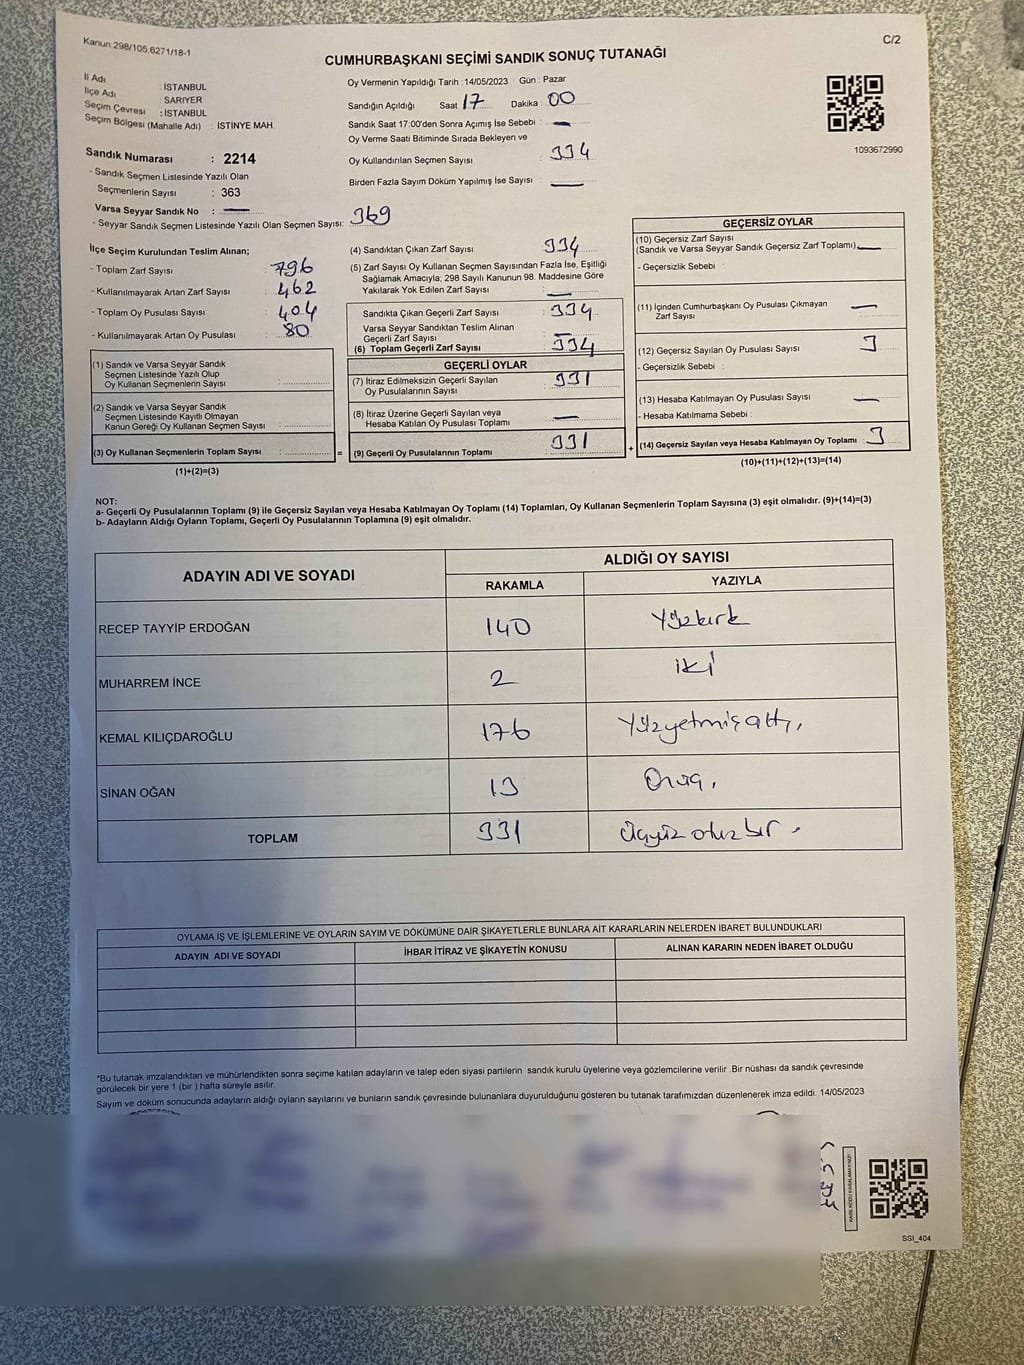 Kanun:298/105,6271/18-1
C/2
CUMHURBAŞKANI SEÇİMİ SANDIK SONUÇ TUTANAĞI
İl Adı : İSTANBUL
İlçe Adı : SARIYER
Seçim Çevresi : İSTANBUL
Seçim Bölgesi (Mahalle Adı) : İSTİNYE MAH.
Sandık Numarası : 2214
- Sandık Seçmen Listesinde Yazılı Olan
Seçmenlerin Sayısı : 363
Varsa Seyyar Sandık No : —
- Seyyar Sandık Seçmen Listesinde Yazılı Olan Seçmen Sayısı: 369
Oy Vermenin Yapıldığı Tarih :14/05/2023 Gün : Pazar
Sandığın Açıldığı Saat 17 Dakika : 00
Sandık Saat 17:00'den Sonra Açımış İse Sebebi : —
Oy Verme Saati Bitiminde Sırada Bekleyen ve
Oy Kullandırılan Seçmen Sayısı : 334
Birden Fazla Sayım Döküm Yapılmış İse Sayısı : —
1093672990
İlçe Seçim Kurulundan Teslim Alınan;
- Toplam Zarf Sayısı : 796
- Kullanılmayarak Artan Zarf Sayısı : 462
- Toplam Oy Pusulası Sayısı : 404
- Kullanılmayarak Artan Oy Pusulası : 80
(1) Sandık ve Varsa Seyyar Sandık
Seçmen Listesinde Yazılı Olup
Oy Kullanan Seçmenlerin Sayısı :
(2) Sandık ve Varsa Seyyar Sandık
Seçmen Listesinde Kayıtlı Olmayan
Kanun Gereği Oy Kullanan Seçmen Sayısı :
(3) Oy Kullanan Seçmenlerin Toplam Sayısı :
(1)+(2)=(3)
(4) Sandıktan Çıkan Zarf Sayısı : 334
(5) Zarf Sayısı Oy Kullanan Seçmen Sayısından Fazla İse, Eşitliği
Sağlamak Amacıyla; 298 Sayılı Kanunun 98. Maddesine Göre
Yakılarak Yok Edilen Zarf Sayısı : —
Sandıkta Çıkan Geçerli Zarf Sayısı : 334
Varsa Seyyar Sandıktan Teslim Alınan
Geçerli Zarf Sayısı : —
(6) Toplam Geçerli Zarf Sayısı : 334
GEÇERLİ OYLAR
(7) İtiraz Edilmeksizin Geçerli Sayılan
Oy Pusulalarının Sayısı : 331
(8) İtiraz Üzerine Geçerli Sayılan veya
Hesaba Katılan Oy Pusulası Toplamı : —
= (9) Geçerli Oy Pusulalarının Toplamı : 331
GEÇERSİZ OYLAR
(10) Geçersiz Zarf Sayısı
(Sandık ve Varsa Seyyar Sandık Geçersiz Zarf Toplamı) —
- Geçersizlik Sebebi :
(11) İçinden Cumhurbaşkanı Oy Pusulası Çıkmayan
Zarf Sayısı : —
(12) Geçersiz Sayılan Oy Pusulası Sayısı : 3
- Geçersizlik Sebebi :
(13) Hesaba Katılmayan Oy Pusulası Sayısı : —
- Hesaba Katılmama Sebebi :
+ (14) Geçersiz Sayılan veya Hesaba Katılmayan Oy Toplamı : 3
(10)+(11)+(12)+(13)=(14)
NOT:
a- Geçerli Oy Pusulalarının Toplamı (9) ile Geçersiz Sayılan veya Hesaba Katılmayan Oy Toplamı (14) Toplamları, Oy Kullanan Seçmenlerin Toplam Sayısına (3) eşit olmalıdır. (9)+(14)=(3)
b- Adayların Aldığı Oyların Toplamı, Geçerli Oy Pusulalarının Toplamına (9) eşit olmalıdır.
ADAYIN ADI VE SOYADI
ALDIĞI OY SAYISI
RAKAMLA YAZIYLA
RECEP TAYYİP ERDOĞAN 140 Yüzkırk
MUHARREM İNCE 2 iki
KEMAL KILIÇDAROĞLU 176 Yüzyetmişaltı,
SİNAN OĞAN 13 Onüç,
TOPLAM 331 Üçyüz otuz bir .
OYLAMA İŞ VE İŞLEMLERİNE VE OYLARIN SAYIM VE DÖKÜMÜNE DAİR ŞİKAYETLERLE BUNLARA AİT KARARLARIN NELERDEN İBARET BULUNDUKLARI
ADAYIN ADI VE SOYADI İHBAR İTİRAZ VE ŞİKAYETİN KONUSU ALINAN KARARIN NEDEN İBARET OLDUĞU
*Bu tutanak imzalandıktan ve mühürlendikten sonra seçime katılan adayların ve talep eden siyasi partilerin sandık kurulu üyelerine veya gözlemcilerine verilir .Bir nüshası da sandık çevresinde
görülecek bir yere 1 (bir ) hafta süreyle asılır.
Sayım ve döküm sonucunda adayların aldığı oyların sayılarını ve bunların sandık çevresinde bulunanlara duyurulduğunu gösteren bu tutanak tarafımızdan düzenlenerek imza edildi. 14/05/2023
SSI_404